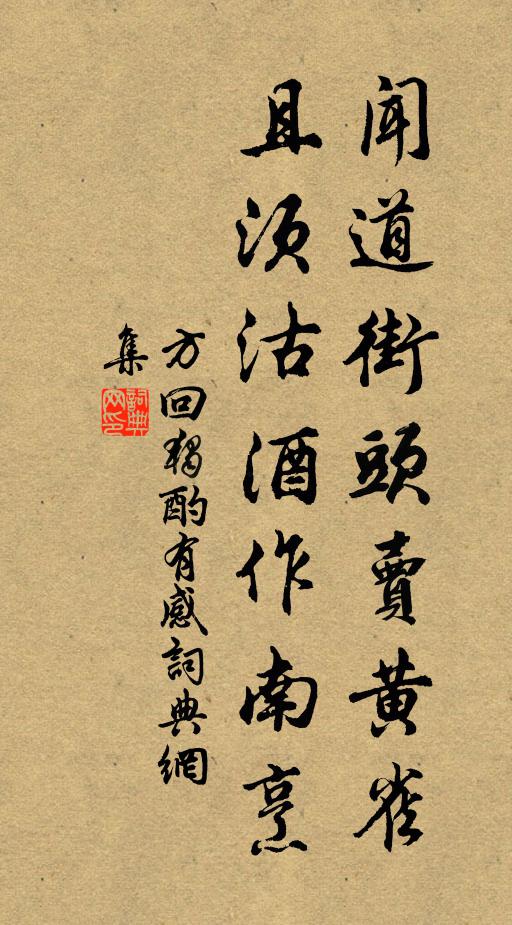 闻道街頭賣黄雀
且须沽酒作南烹
方回獨酌有感詞典網
集
詞典網印